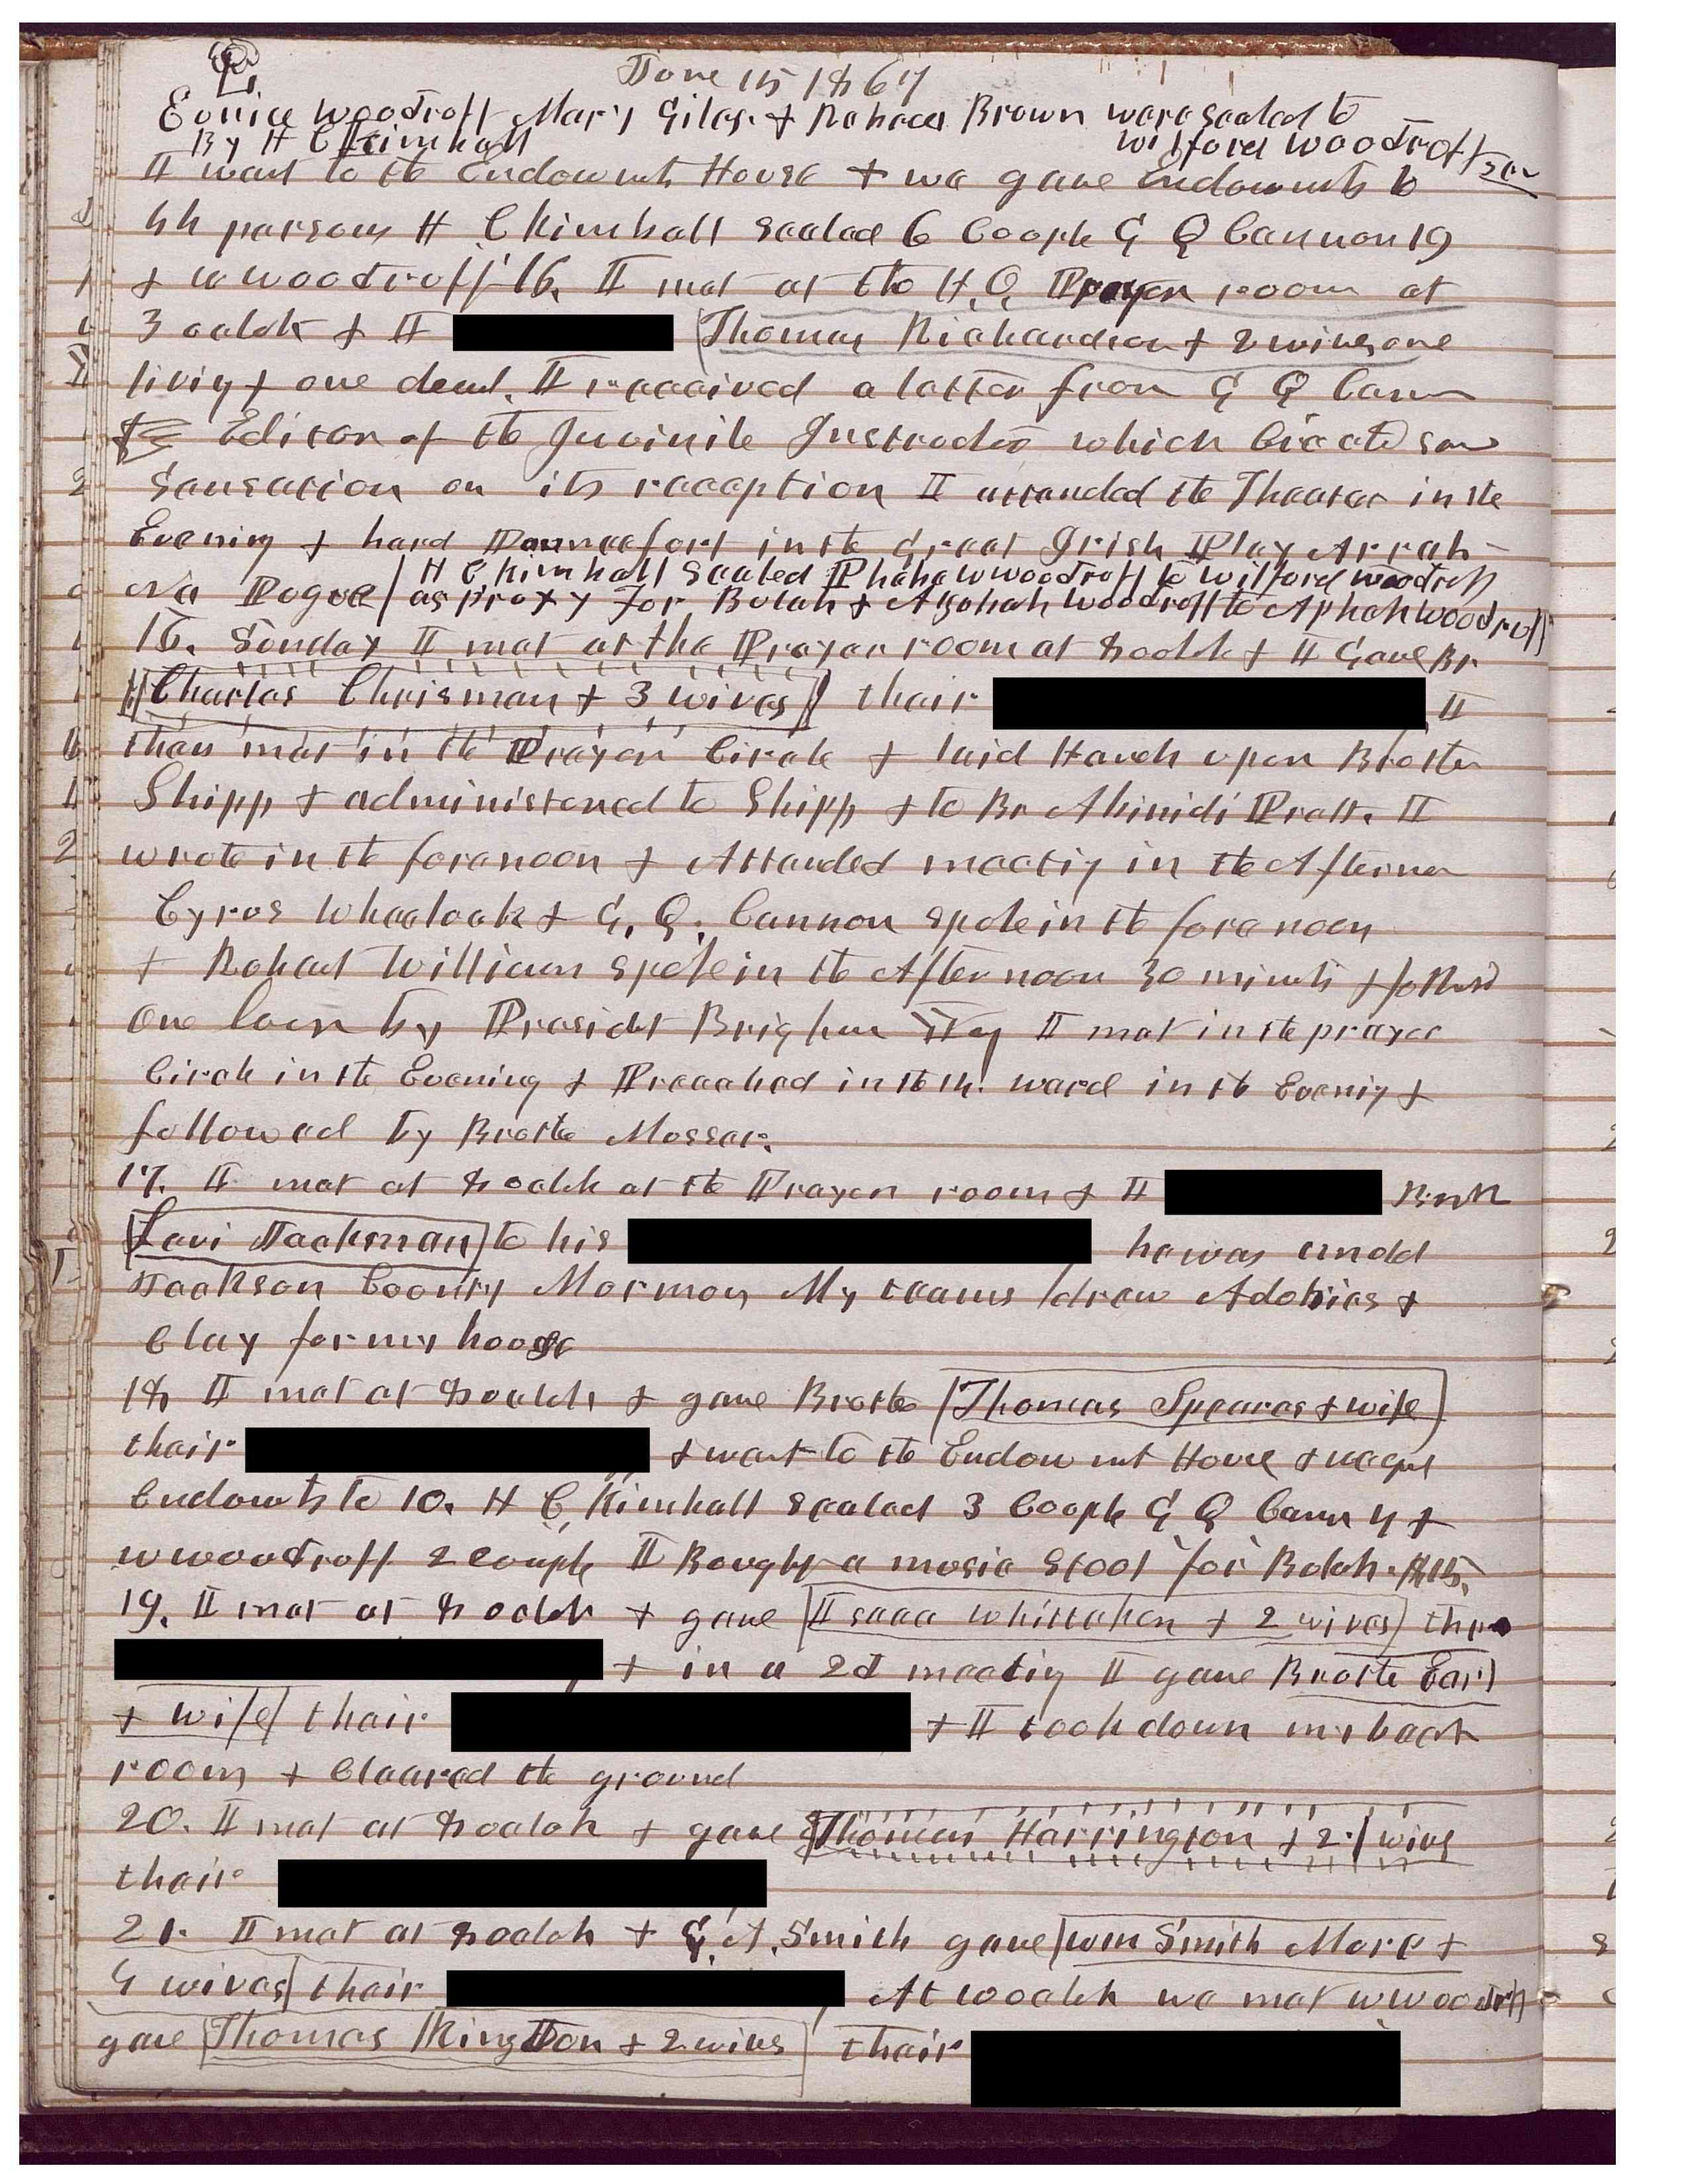 June 15 1867
Eunice Woodruff Mary Giles & Rebecca Brown were sealed to
By H C Kimball Wilford Woodruff sen
I went to the Endowmts House & we gave Endowmts to
44 persons H C Kimball sealed 6 Couple G Q Cannon 19
& W Woodruff 16. I met at the H.Q. Prayer room at
3 oclok & I Thomas Richardson & 2 wives one
living & one dead. I received a letter from G Q Cann
Editor of the Juvinile Instructor which Created som
sensation on its reception I attended the Theater in the
Evening & herd Pauncefort in the great Irish Play Arrah
Na Pogue H C Kimball Sealed Phebe W Woodruff to Wilford Woodruff
as proxy for Bulah & Aseneth Woodruff to Aphek Woodruff
16. Sunday I met at the Prayer room at 8 oclok & I gave Br
Charles Chrisman & 3 wives their I
then met in the Prayer Circle & laid Hands upon Brother
Shipp & administered to Shipp & to Br Abinidi Pratt. I
wrote in the forenoon & Attended meeting in the Afternn
Cyrus Wheelock & G. Q. Cannon spoke in the forenoon
& Robert William spoke in the Afternoon 30 minuts & follwd
one hour by Presidet Brigham Yg I met in the prayer
Circle in the Evening & Preached in the 14. ward in the Evenig &
followed by Brother Musser.
17. I met at 8 oclok at the Prayer room & I
Levi Jackman to his he was an old
Jackson County Mormon My teams drew Adobies &
Clay for my house
18 I met at 8 oclok & gave Brother Thomas Speares & wife
their & went to the Endowmt House &
Endowts to 10. H C Kimball sealed 3 Couple G Q Cann 4 &
W Woodruff 2 Couple I Bought a music Stool for Bulah. $15.
19. I met at 8 oclok & gave Isaac Whittaker & 2 wives thr
& in a 2d meetig I gave Brother Earl
& wife their & I took down my back
room & Cleared the ground
20. I met at 8 oclok & gave Thomas Harrington & 2 wives
their
21. I met at 8 oclok & G. A. Smith gave Wm Smith More &
4 wives their At oclok we met W Woodruff
gave Thomas Kington & 2 wives their